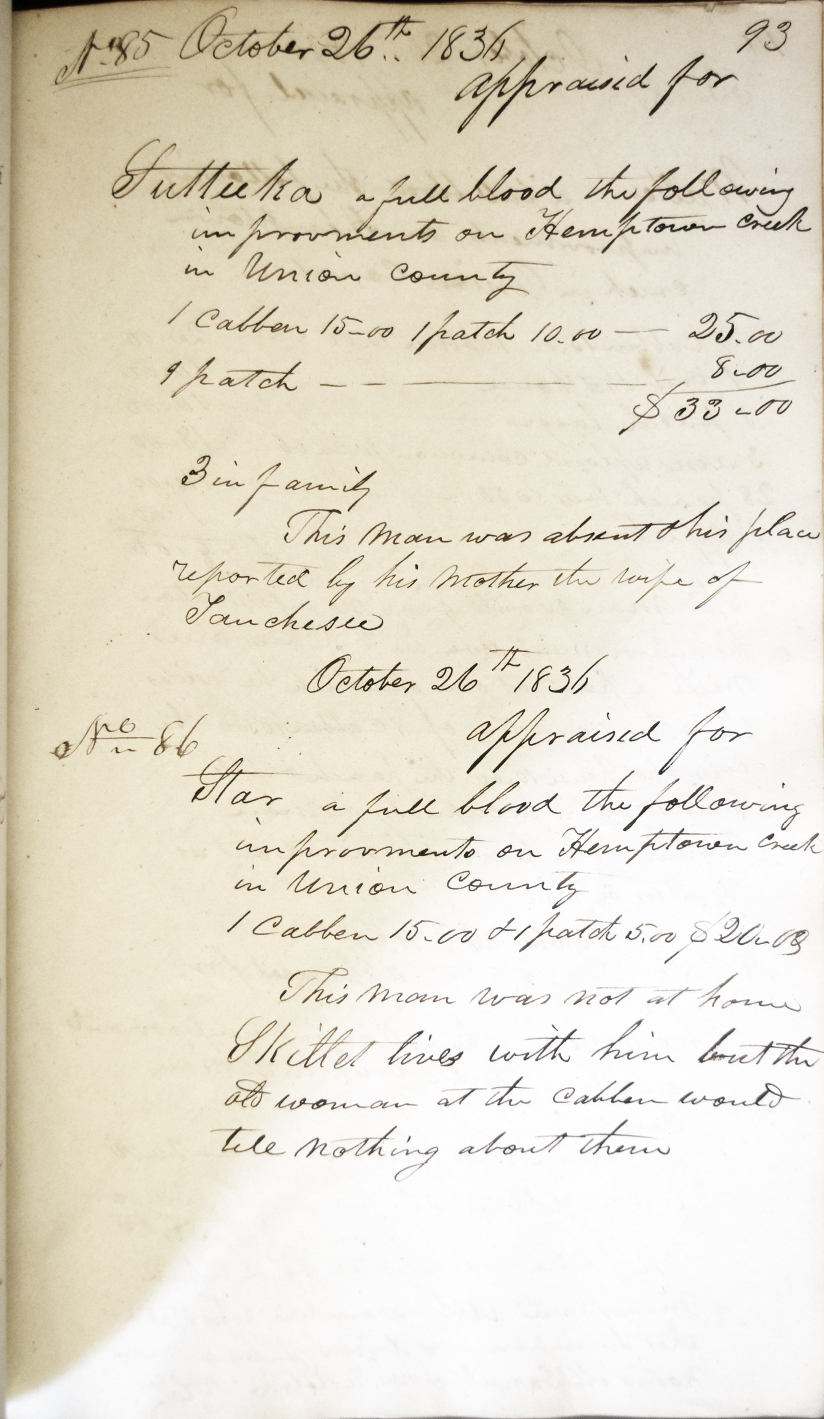 No 85 October 26th 1836 93
appraised for
Sutteeka a full blood the following
improvments on Hemptown Creek
in Union County
1 Cabben 15-00 1 patch 10.00 — 25.00
1 patch — — — 8-00
$ 33-00
3 in family
This man was absent & his place
reported by his Mother the wife of
Tauchesee
October 26th 1836
No 86 appraised for
Star a full blood the following
improvments on Hemptown Creek
in Union County
1 Cabben 15-00 & 1 patch 5.00 $ 20-00
This man was not at home
Skillet lives with him but the
old woman at the Cabben would
tell nothing about them